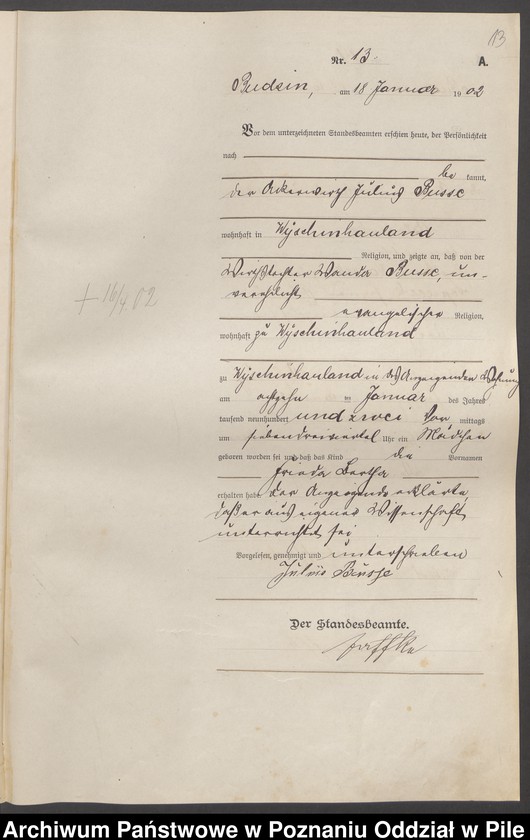 13
Nr. 13. A.
Budsin, am 18 Januar 1902
Vor dem unterzeichneten Standesbeamten erschien heute, der Persönlichkeit
nach
be kannt,
der Ackerwirth Julius Busse
wohnhaft in Wyschinhauland
Religion, und zeigte an, daß von der
Wirthstochter Wanda Busse, un-
verehelicht
evangelischer Religion,
wohnhaft zu Wyschinhauland
zu Wyschinhauland in des Anzeigenden Wohnung
am achtzehn ten Januar des Jahres
tausend neunhundert und zwei Vor mittags
um sieben dreiviertel Uhr ein Mädchen
geboren worden sei und daß das Kind die Vornamen
Frieda Bertha
erhalten habe. Der Anzeigende erklärte
daß er aus eigener Wissenschaft
unterrichtet sei
Vorgelesen, genehmigt und unterschrieben
Julius Busse
Der Standesbeamte.
+ 16/4 02
Archiwum Państwowe w Poznaniu Oddział w Pile